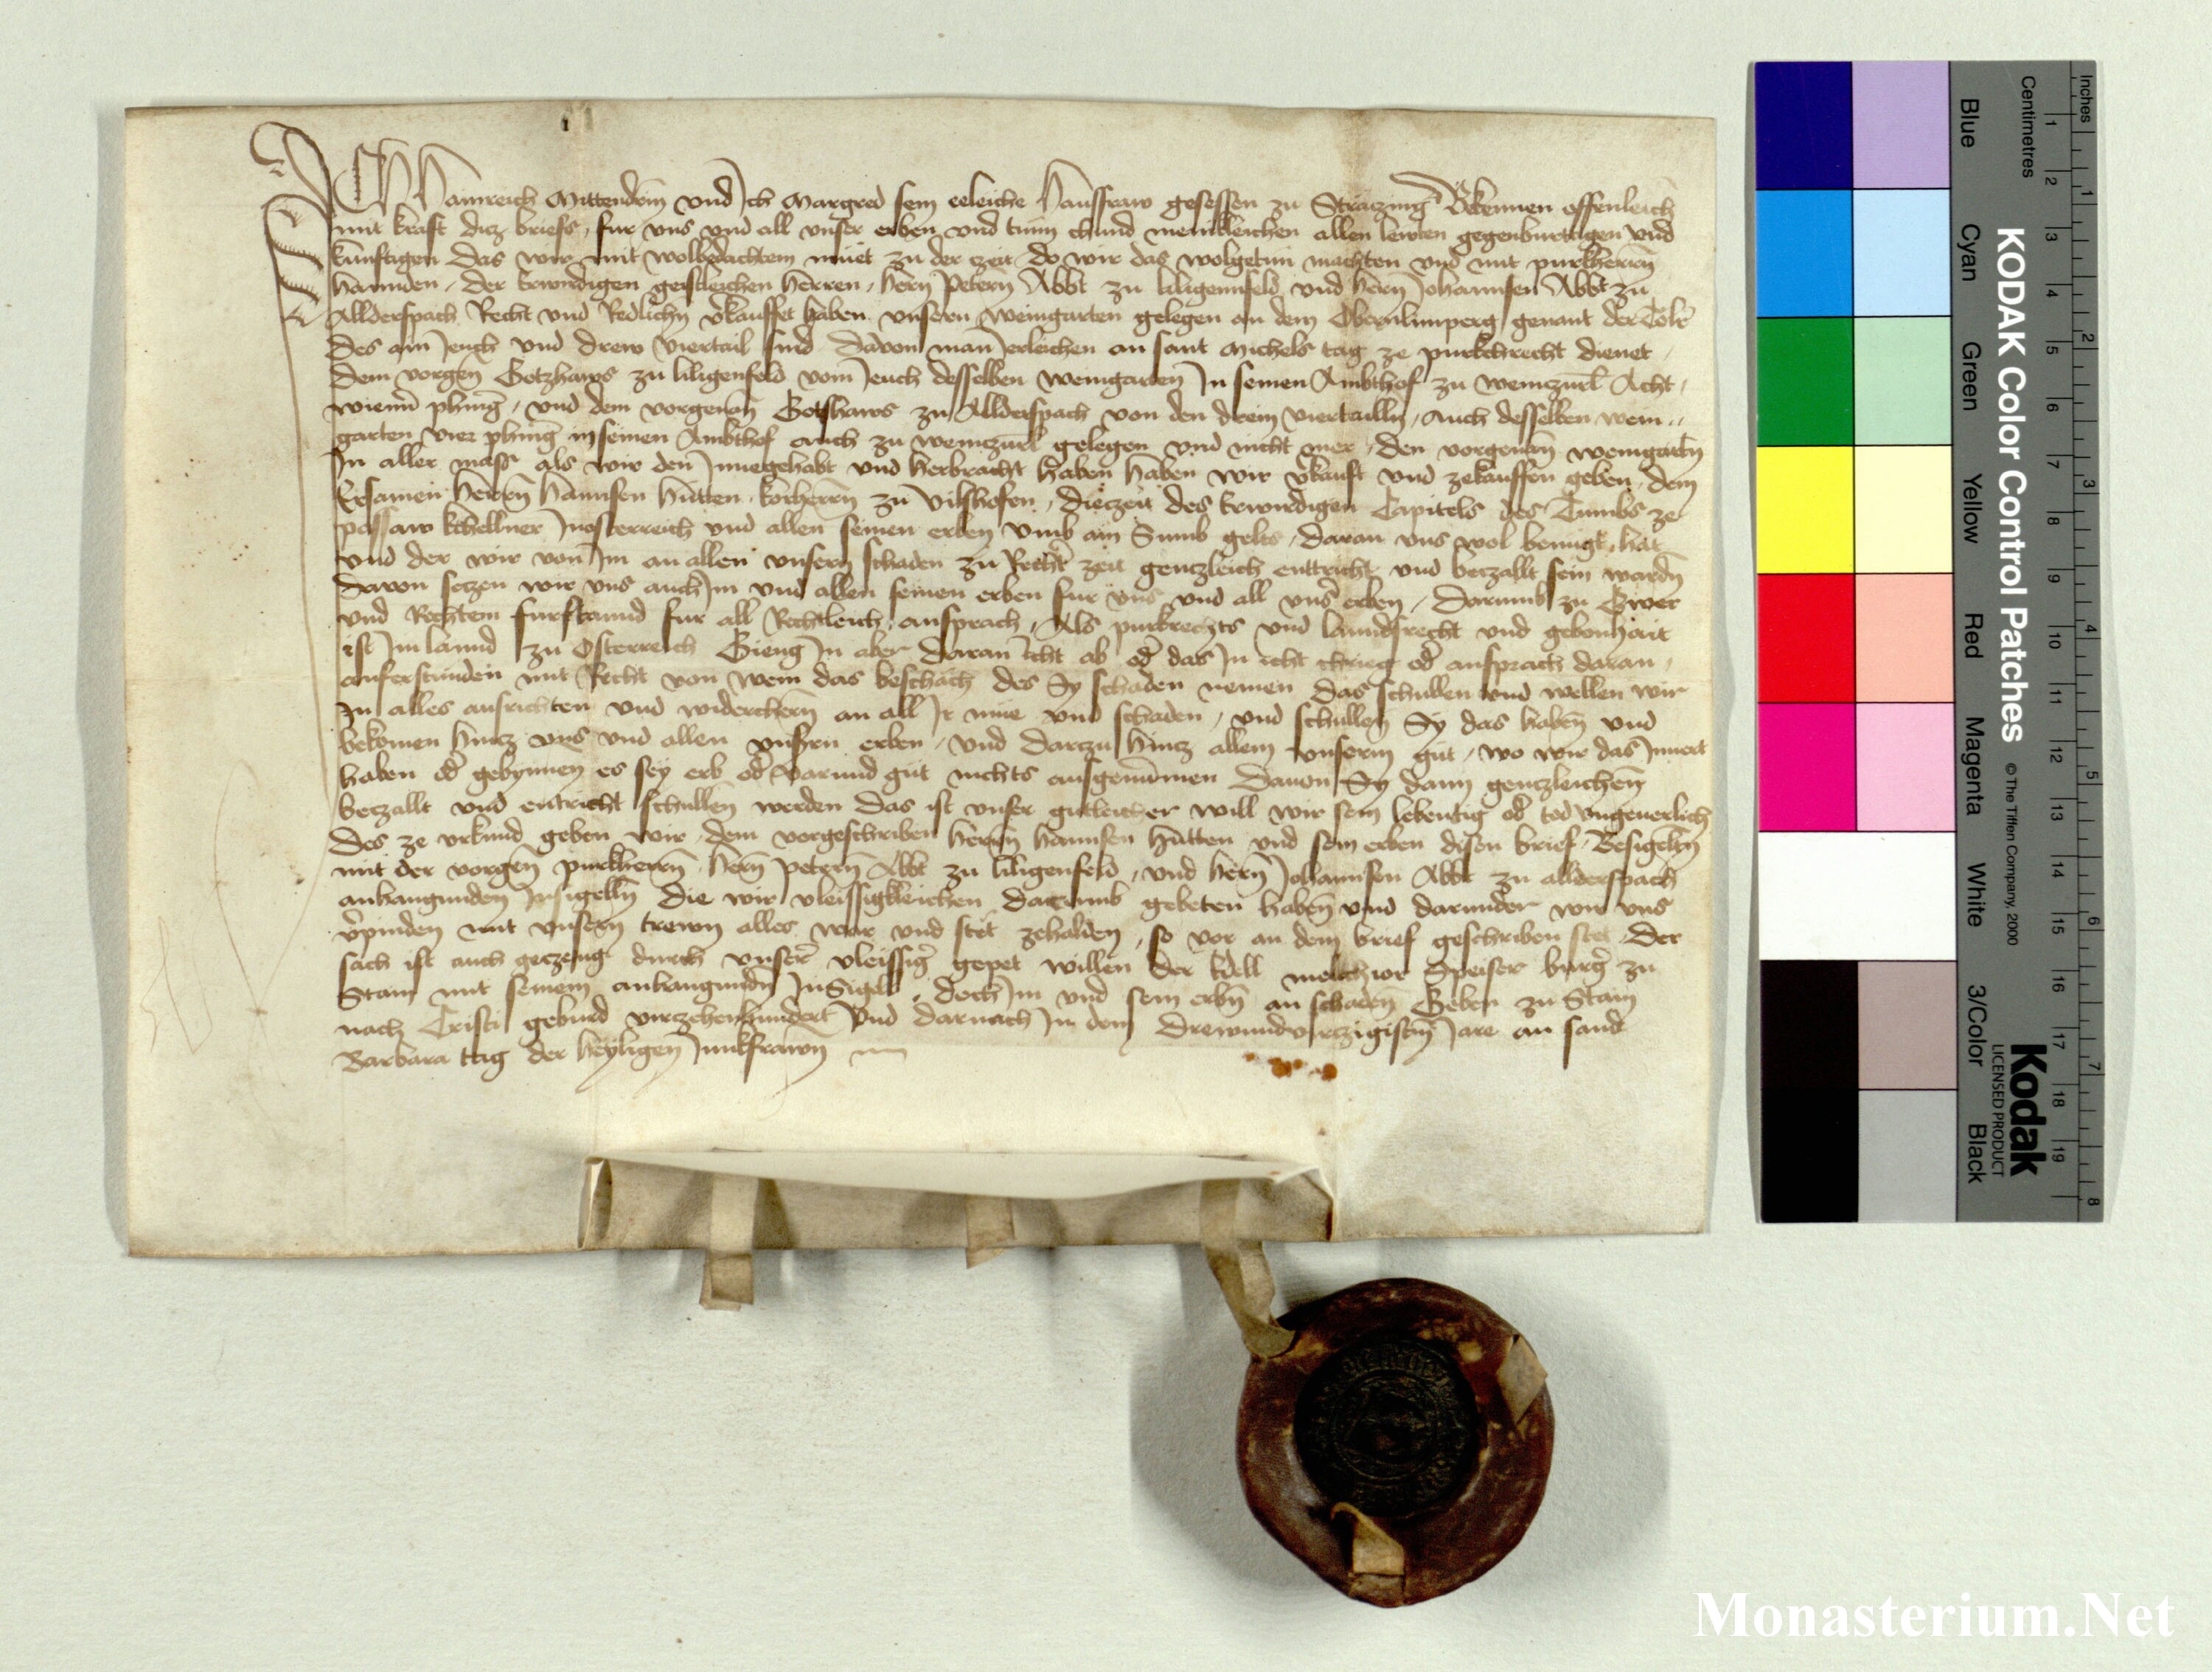 ICh Hainreich Mittendein vnd Ich Margred sein eeleiche Hausfraw gesessen zu Straczing Bekennen offenleich
mit kraft dicz briefs, fur vns vnd all vnser erben vnd tunn chund menikleichen allen lewten gegenburtigen vnd
kunftigen Das wir mit wolbedachtem muet zu der zeit do wir das wolgetun machten vnd mit purkherrn̄
hannden, der Erwirdigen geistleichen herren, hern̄ Petern̄ Abbt zu liligennfeld vnd hern̄ Johannsen Abbt zu
Allderspach Recht vnd Redlichn̄ v̄kauffet haben vnsern weingarten gelegen an dem Obernlimperg genant der
des ain Jeuch vnd drew viertail sind Dauon man Jerleichen an sant Michels tag ze purkchrecht dienet,
Dem vorgen̄ Gotzhaws zu liligenfeld vom Jeuch desselben weingarten In seinen Ambthof zu weinczurl Acht,
wienn̄ phinḡ, vnd dem vorgenan̄ Gotshaws zu Allderspach von den drein viertailln, auch desselben wein,,
garten vier phinḡ in seinen Ambthof auch zu weinczurl gelegen vnd nicht mer, den vorgenan̄ weingartn̄
In aller mass als wir den Innegehabt vnd herbracht haben haben wir v̄kauft vnd zekauffen geben, dem
Ersamen herrn̄ hannsen hutten, korherrn̄ zu vilshofen, dieczeit des Erwirdigen Capitels des Tumbs ze
passaw kchellner Inosterreich vnd allen seinen erben vmb ain Sumb gelts, daran vns wol benugt hat
vnd der wir von Im an allen vnsern schaden zu Rechtr̄ zeit genczleich enttricht vnd beczallt sein wordn̄
Dauon seczen wir vns auch Im vnd allen seinen erben fur vns vnd all vnsr̄ erben, darumb zu Gwer
vnd Rechtem furstannd fur all Rechtleich ansprach, Als purkrechts vnd lanndsrecht vnd gebonhait
ist Im lannd zu Osterreich Gieng In aber daran icht ab od̄ das In icht chrieg od̄ ansprach daran,
auferstunden mit Recht von wem das beschach des Sy schaden nemen das schullen vnd wellen wir
In alles ausrichten vnd widerchern̄ an all Ir mue vnd schaden, vnd schullen Sy das haben vnd
bekomen hincz vns vnd allen vnsern erben, vnd darczu hincz allem vnserm gut, wo wir das Innert
haben od̄ gebynnen es sey erb od̄ varund gut nichts ausgenummen Dauon Sy dann genczleichen
beczallt vnd entricht schullen werden das ist vnser gutleicher will wir sein lebentig od̄ tod vngeuerlich
Des ze vrkund geben wir, dem vorgeschriben herrn̄ hannsen hutten vnd sein erben disen brief, Besigeltn̄
mit der vorgen̄ purkherrn̄, hern̄ petern̄ Abbt zu liligenfeld, vnd hern̄ Johannsen Abbt zu allderspach
anhangunden Insigelln̄ die wir vleissigkleichen darumb gebeten haben vnd darunder wir vns
v̄pinden mit vnsern trewn alles war vnd stet zehalden, so vor an dem brief geschriben stet, Der
sach ist auch geczeug durch vnserr̄ vleissigr̄ gepet willen der Edell Melchior Speiser burgr̄ zu
Stain mit seinem anhangundn̄ Insigel, doch Im vnd sein erbn̄ an schaden Geben zu Stain
nach Cristi geburd virczehenhundert Vnd darnach In dem Drewundvirczigistn̄ Jare an sand
Barbara tag der heyligen Junkfrawn̄
Inches
Centimetres
KODAK Color Control Patches
© The Tiffen Company, 2000
Kodak
LICENSED PRODUCT
Blue Cyan Green Yellow Red Magenta White 3/Color Black
1 2 3 4 5 6 7 8 9 10 11 12 13 14 15 16 17 18 19
1 2 3 4 5 6 7 8
Monasterium.Net